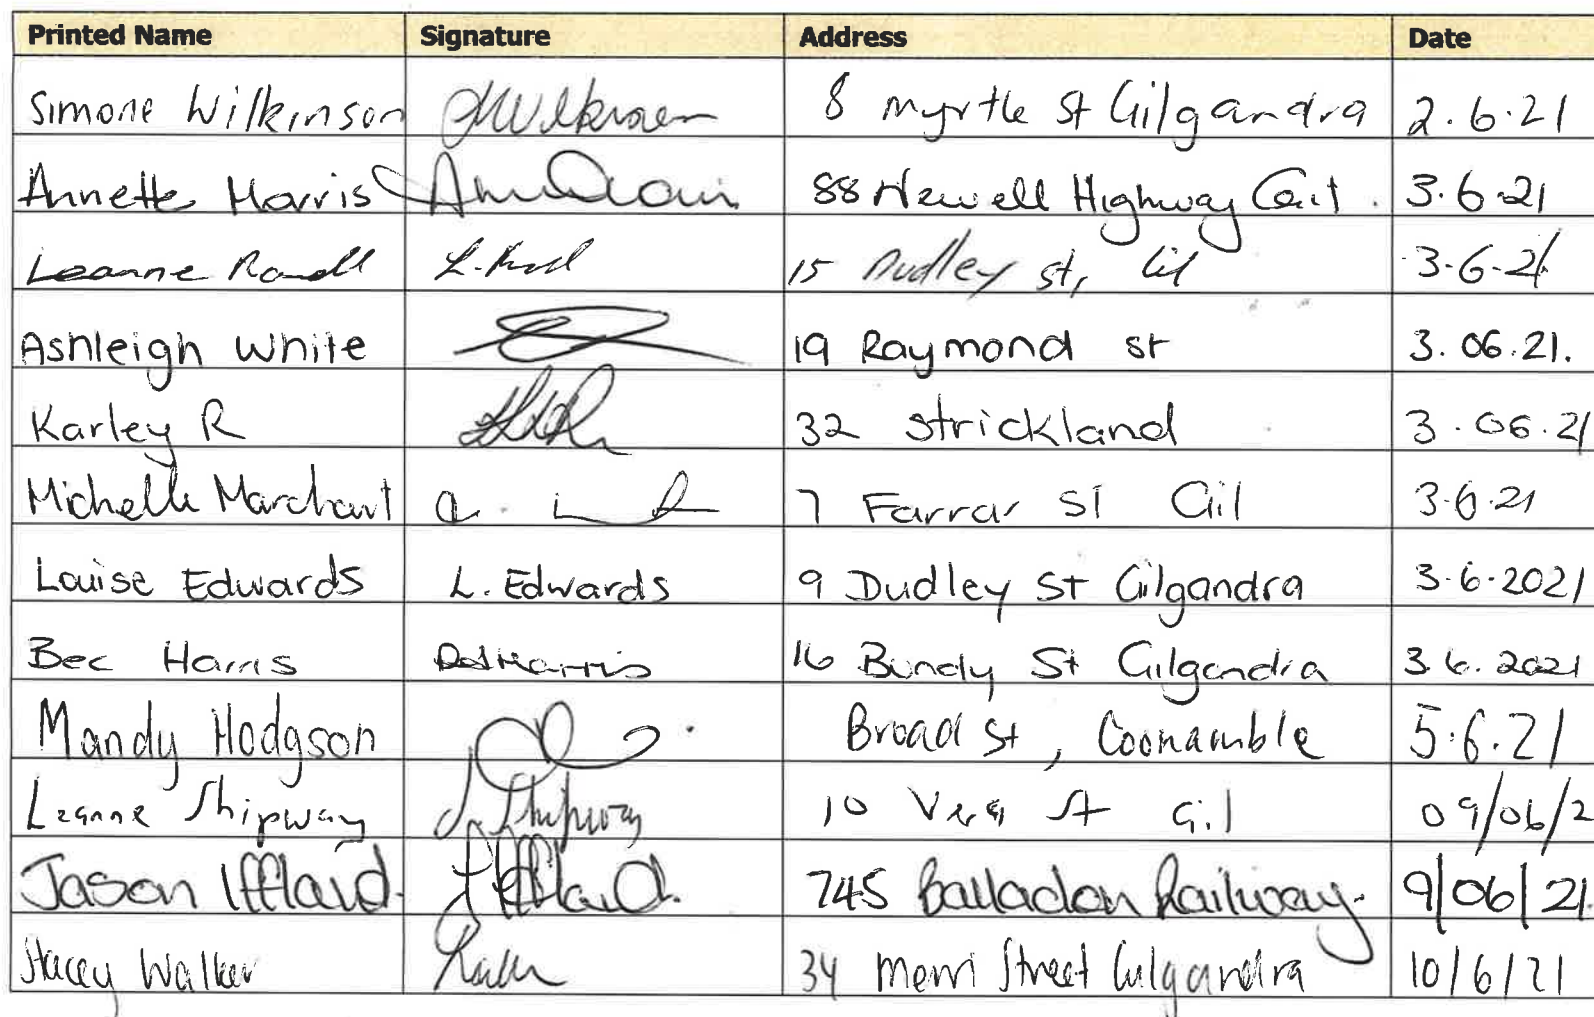 Printed Name Signature Address Date
Simone Wilkinson 8 Myrtle St Gilgandra 2.6.21
Annette Morris 88 Newell Highway 3.6.21
Leanne L. 15 Dudley st, Gil 3-6-21
Ashleigh White 19 Raymond st 3.06.21.
Karley R 32 Strickland 3.06.21
Michelle Marchant 7 Farrar ST Gil 3.6.21
Louise Edwards L. Edwards 9 Dudley St Gilgandra 3.6.2021
Bec Harris 16 Bundy St Gilgandra 3.6.2021
Mandy Hodgson Broad St, Coonamble 5.6.21
Leanne Shipway L. Shipway 10 St Gil 09/06/2
Jason Iffland. J Iffland. 745 Balladoran Railway. 9/06/21.
Stacey Walker 34 Merri Street Gulgandra 10/6/21